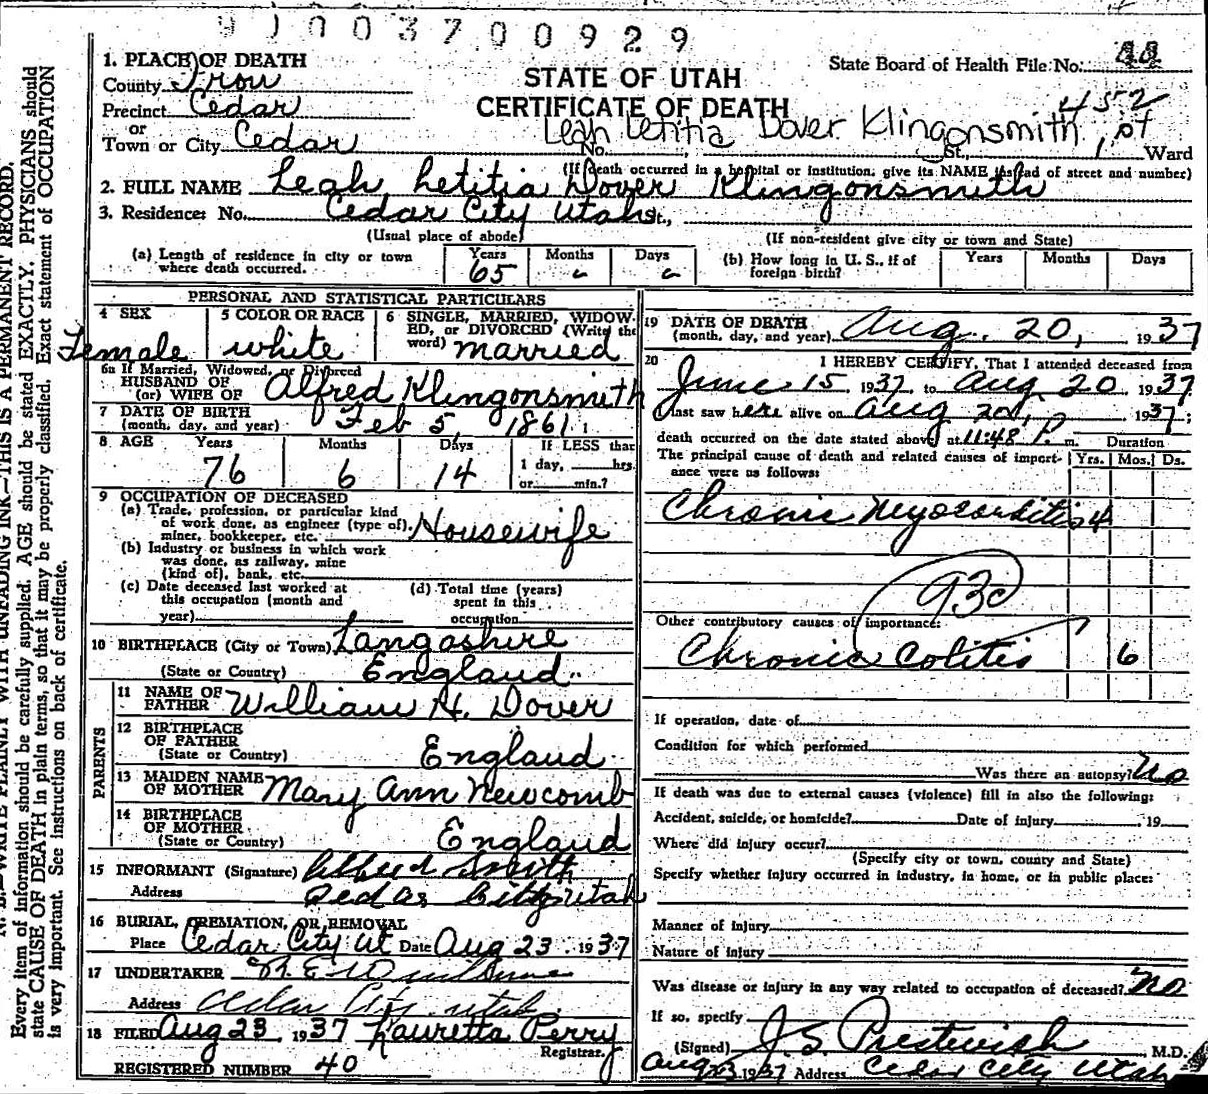 91003700929
N. B.—WRITE PLAINLY WITH UNFADING INK—THIS IS A PERMANENT RECORD.
Every item of information should be carefully supplied. AGE should be stated EXACTLY. PHYSICIANS should
state CAUSE OF DEATH in plain terms, so that it may be properly classified. Exact statement of OCCUPATION
is very important. See instructions on back of certificate.
1. PLACE OF DEATH
County Iron
Precinct Cedar
or
Town or City Cedar
STATE OF UTAH
CERTIFICATE OF DEATH
State Board of Health File No.
452
Leah Letitia Dover Klingonsmith, pt
No. St., Ward
(If death occurred in a hospital or institution, give its NAME instead of street and number)
2. FULL NAME Leah Letitia Dover Klingonsmith
3. Residence: No. Cedar City Utah St.,
(Usual place of abode) (If non-resident give city or town and State)
(a) Length of residence in city or town where death occurred. Years 65 Months Days
(b) How long in U. S., if of foreign birth? Years Months Days
PERSONAL AND STATISTICAL PARTICULARS
4 SEX Female
5 COLOR OR RACE white
6 SINGLE, MARRIED, WIDOWED, or DIVORCED (Write the word) married
6a If Married, Widowed, or Divorced
HUSBAND OF
(or) WIFE OF Alfred Klingonsmith
7 DATE OF BIRTH
(month, day, and year) Feb 5, 1861
8 AGE Years 76 Months 6 Days 14 If LESS than
1 day, hrs.
or min.?
9 OCCUPATION OF DECEASED
(a) Trade, profession, or particular kind
of work done, as engineer (type of),
miner, bookkeeper, etc. Housewife
(b) Industry or business in which work
was done, as railway, mine
(kind of), bank, etc.
(c) Date deceased last worked at
this occupation (month and
year)
(d) Total time (years)
spent in this
occupation
10 BIRTHPLACE (City or Town) Langashire
(State or Country) England
PARENTS
11 NAME OF
FATHER William H. Dover
12 BIRTHPLACE
OF FATHER
(State or Country) England
13 MAIDEN NAME
OF MOTHER Mary Ann Newcomb
14 BIRTHPLACE
OF MOTHER
(State or Country) England
15 INFORMANT (Signature) Alfred Smith
Address Cedar City Utah
16 BURIAL, CREMATION, OR REMOVAL
Place Cedar City Ut Date Aug 23, 1937
17 UNDERTAKER
Address Cedar City Utah
18 FILED Aug 23, 1937 Lauretta Perry
Registrar.
REGISTERED NUMBER 40
19 DATE OF DEATH
(month, day, and year) Aug. 20, 1937
20 I HEREBY CERTIFY, That I attended deceased from
June 15 1937, to Aug 20 1937
I last saw her alive on Aug 20, 1937;
death occurred on the date stated above, at 11:48 P. m. Duration
The principal cause of death and related causes of importance were as follows: Yrs. Mos. Ds.
Chronic Myocarditis 4
93c
Other contributory causes of importance:
Chronic Colitis 6
If operation, date of
Condition for which performed
Was there an autopsy? No
If death was due to external causes (violence) fill in also the following:
Accident, suicide, or homicide? Date of injury , 19
Where did injury occur?
(Specify city or town, county and State)
Specify whether injury occurred in industry, in home, or in public place:
Manner of injury
Nature of injury
Was disease or injury in any way related to occupation of deceased? No
If so, specify
(Signed) J. S. Prestwich, M.D.
Aug 23 1937 Address Cedar City Utah